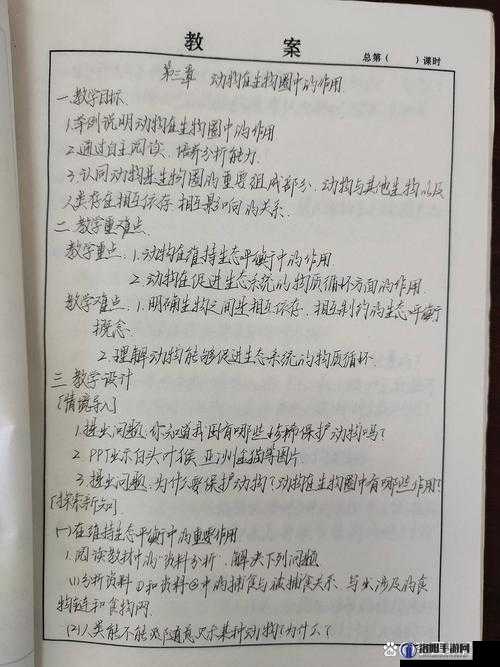 教 案 总第（ ）课时
第三章 动物在生物圈中的作用
一.教学目标
1.举例说明动物在生物圈中的作用
2.通过自主阅读、培养分析能力.
3.认同动物是生物圈的重要组成部分、动物与其他生物以及
人类存在相互依存、相互影响的关系.
二.教学重难点.
教学重点：1.动物在维持生态平衡中的作用
2.动物在促进生态系统的物质循环方面的作用
教学难点：1.明确生物之间是相互依存、相互制约的生态平衡
概念.
2.理解动物能够促进生态系统的物质循环.
三 教学设计
[情境导入]
1.提出问题：你知道我国有哪些珍稀保护动物吗？
2.PPT出示白头叶猴、亚洲金猫等图片
3.提出问题：为什么要保护动物？动物在生物圈中有哪些作用？
[探索新知]
(一)在维持生态平衡中的重要作用
1.阅读教材中的"资料分析"，解决下列问题
(1)分析资料①和资料②中的捕食与被捕食关系、写出涉及的食
物链和食物网
(2)人类能不能随意灭杀某种动物？为什么？
洛阳手游网